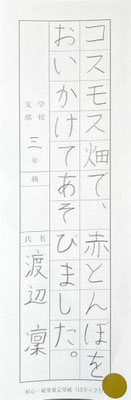 コスモス畑で、赤とんぼを
おいかけてあそびました。
学校
支部
三年
級
氏名
渡辺凜